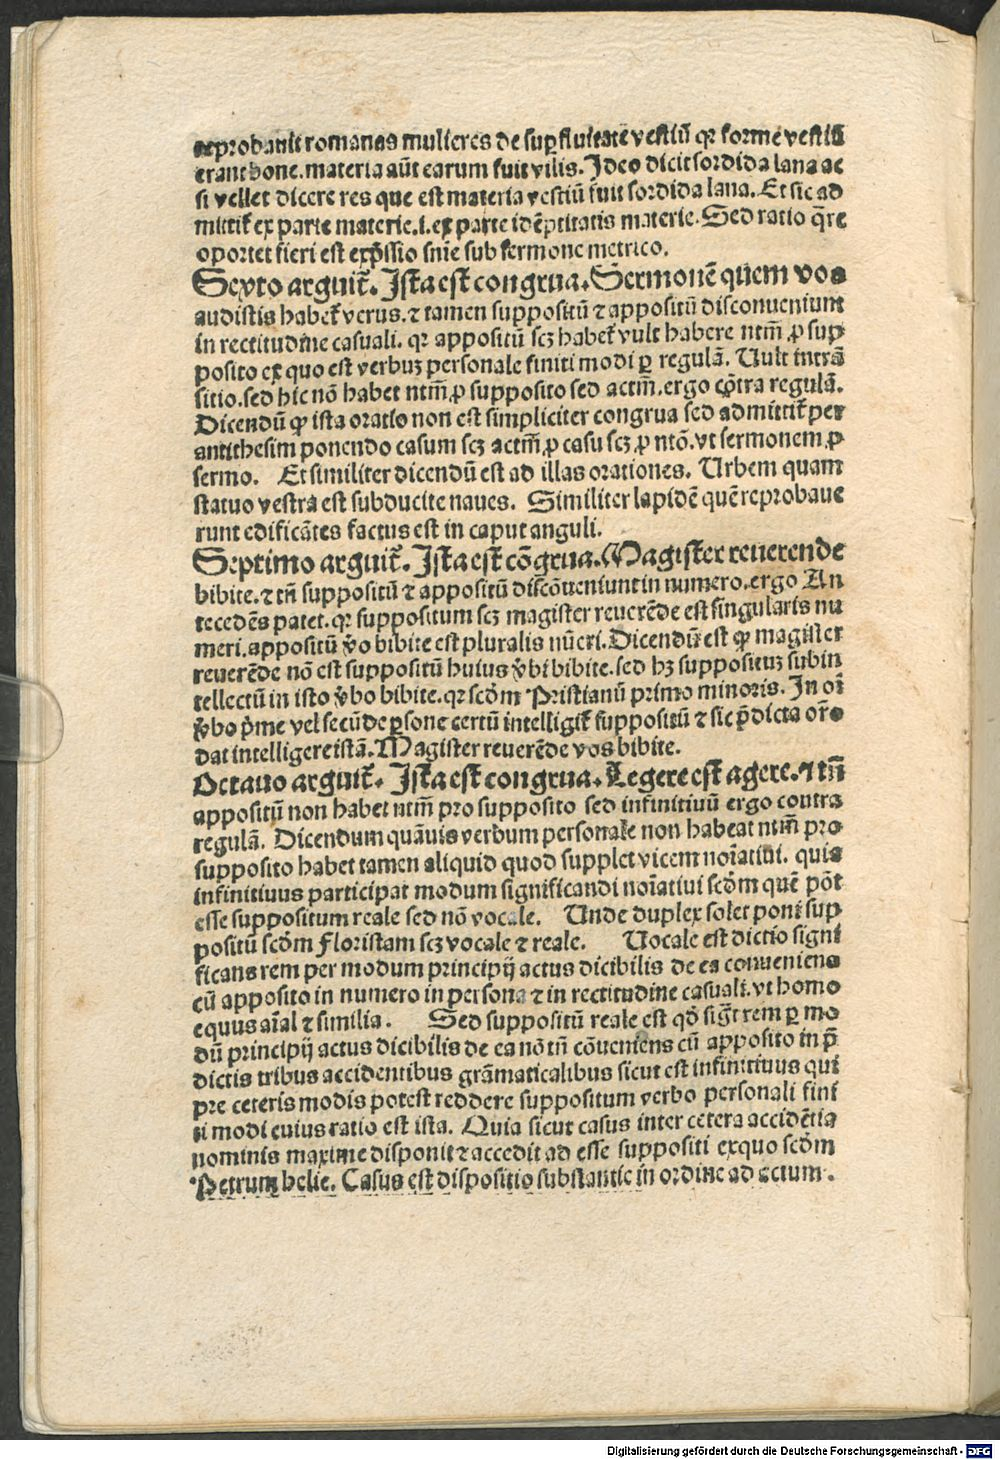 reprobauit romanas mulieres de suꝑfluitate vestiū qꝛ forme vestiū
erant bone. materia aūt earum fuit vilis. Ideo dicit sordida lana ac
si vellet dicere res que est materia vestiū fuit sordida lana. Et sic ad
mittit᷑ ex parte materie. i. ex parte idēptitatis materie. Sed ratio q̄re
oportet fieri est exp̄ssio snīe sub sermone metrico.
Sexto arguit᷑. Ista est congrua. Sermonē quem vos
audistis habet᷑ verus. ⁊ tamen suppositū ⁊ appositū disconueniunt
in rectitudine casuali. qꝛ appositū scꝫ habet᷑ vult habere ntm̄ ꝓ sup
posito ex quo est verbuꝫ personale finiti modi ꝑ regulā. Vult intrā
sitio. sed hic nō habet ntm̄ ꝓ supposito sed actm̄. ergo cōtra regulā.
Dicendū ꝙ ista oratio non est simpliciter congrua sed admittit᷑ per
antithesim ponendo casum scꝫ actm̄ ꝓ casu scꝫ ꝓ ntō. vt sermonem ꝓ
sermo. Et similiter dicendū est ad illas orationes. Urbem quam
statuo vestra est subducite naues. Similiter lapidē quē reprobaue
runt edificātes factus est in caput anguli.
Septimo arguit᷑. Ista est cōgrua. Magister reuerende
bibite. ⁊ tn̄ suppositū ⁊ appositū discōueniunt in numero. ergo An
tecedēs patet. qꝛ suppositum scꝫ magister reuerēde est singularis nu
meri. appositū v̄o bibite est pluralis nūeri. Dicendū est ꝙ magister
reuerēde nō est suppositū huius v̄bi bibite. sed hꝫ supposituꝫ subin
tellectū in isto v̄bo bibite. qꝛ scd̄m Pristianū primo minoris. In oī
v̄bo p̄me vel secūde ꝑsone certū intelligit᷑ suppositū ⁊ sic p̄dicta orō
dat intelligere istā. Magister reuerēde vos bibite.
Octauo arguit᷑. Ista est congrua. Legere est agere. ⁊ tn̄
appositū non habet ntm̄ pro supposito sed infinitiuū ergo contra
regulā. Dicendum quāuis verbum personale non habeat ntm̄ pro
supposito habet tamen aliquid quod supplet vicem noīatiui. quia
infinitiuus participat modum significandi noīatiui scd̄m quē pōt
esse suppositum reale sed nō vocale. Unde duplex solet poni sup
positū scd̄m Floristam scꝫ vocale ⁊ reale. Uocale est dictio signi
ficans rem per modum principij actus dicibilis de ea conueniens
cū apposito in numero in persona ⁊ in rectitudine casuali. vt homo
equus aīal ⁊ similia. Sed suppositū reale est qd̄ siḡt rem ꝑ mo
dū principij actus dicibilis de ea nō tn̄ cōueniens cū apposito in p̄
dictis tribus accidentibus grāmaticalibus sicut est infinitiuus qui
pre ceteris modis potest reddere suppositum verbo personali fini
ti modi cuius ratio est ista. Quia sicut casus inter cetera accidētia
nominis maxime disponit ⁊ accedit ad esse suppositi exquo scd̄m
Petrum helie. Casus est dispositio substantie in ordine ad actum.
Digitalisierung gefördert durch die Deutsche Forschungsgemeinschaft - DFG